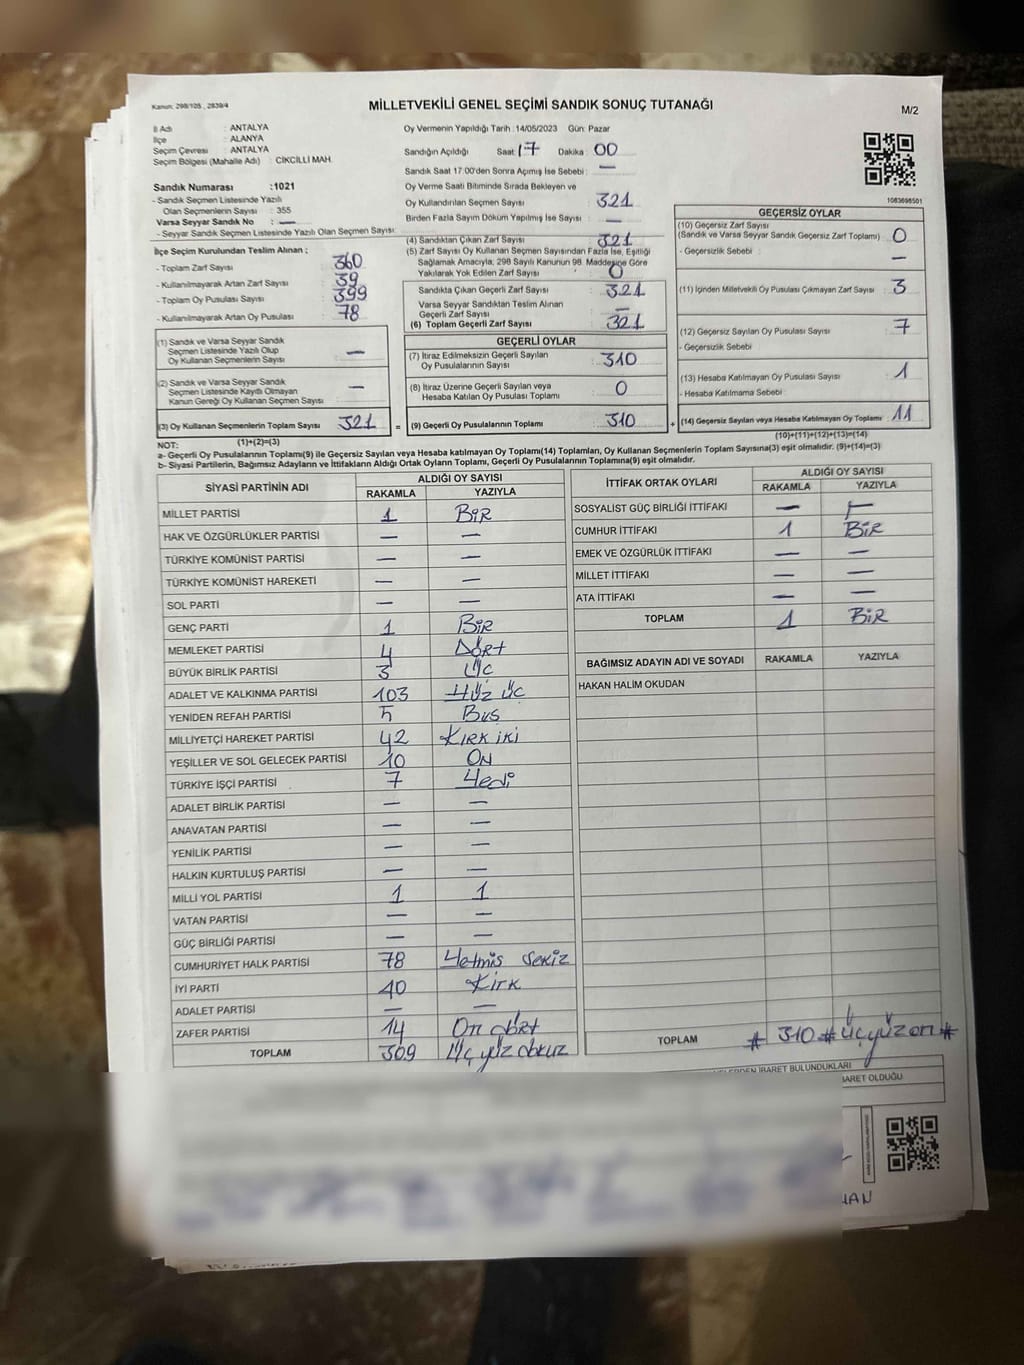 Kanun: 298/105 , 2839/4
MİLLETVEKİLİ GENEL SEÇİMİ SANDIK SONUÇ TUTANAĞI
M/2
İl Adı : ANTALYA
İlçe : ALANYA
Seçim Çevresi : ANTALYA
Seçim Bölgesi (Mahalle Adı) : CİKCİLLİ MAH.
Sandık Numarası :1021
- Sandık Seçmen Listesinde Yazılı
Olan Seçmenlerin Sayısı : 355
Varsa Seyyar Sandık No : —
- Seyyar Sandık Seçmen Listesinde Yazılı Olan Seçmen Sayısı:
Oy Vermenin Yapıldığı Tarih :14/05/2023 Gün: Pazar
Sandığın Açıldığı Saat: 17 Dakika: 00
Sandık Saat 17:00'den Sonra Açımış İse Sebebi : —
Oy Verme Saati Bitiminde Sırada Bekleyen ve
Oy Kullandırılan Seçmen Sayısı : 321
Birden Fazla Sayım Döküm Yapılmış İse Sayısı : —
1083698501
İlçe Seçim Kurulundan Teslim Alınan ;
- Toplam Zarf Sayısı : 360
- Kullanılmayarak Artan Zarf Sayısı : 39
- Toplam Oy Pusulası Sayısı : 399
- Kullanılmayarak Artan Oy Pusulası : 78
(1) Sandık ve Varsa Seyyar Sandık
Seçmen Listesinde Yazılı Olup
Oy Kullanan Seçmenlerin Sayısı : —
(2) Sandık ve Varsa Seyyar Sandık
Seçmen Listesinde Kayıtlı Olmayan
Kanun Gereği Oy Kullanan Seçmen Sayısı : —
(3) Oy Kullanan Seçmenlerin Toplam Sayısı : 321 =
(1)+(2)=(3)
(4) Sandıktan Çıkan Zarf Sayısı : 321
(5) Zarf Sayısı Oy Kullanan Seçmen Sayısından Fazla İse, Eşitliği
Sağlamak Amacıyla; 298 Sayılı Kanunun 98. Maddesine Göre
Yakılarak Yok Edilen Zarf Sayısı : 0
Sandıkta Çıkan Geçerli Zarf Sayısı : 321
Varsa Seyyar Sandıktan Teslim Alınan
Geçerli Zarf Sayısı : —
(6) Toplam Geçerli Zarf Sayısı : 321
GEÇERLİ OYLAR
(7) İtiraz Edilmeksizin Geçerli Sayılan
Oy Pusulalarının Sayısı : 310
(8) İtiraz Üzerine Geçerli Sayılan veya
Hesaba Katılan Oy Pusulası Toplamı : 0
(9) Geçerli Oy Pusulalarının Toplamı : 310 +
GEÇERSİZ OYLAR
(10) Geçersiz Zarf Sayısı
(Sandık ve Varsa Seyyar Sandık Geçersiz Zarf Toplamı) : 0
- Geçersizlik Sebebi : —
(11) İçinden Milletvekili Oy Pusulası Çıkmayan Zarf Sayısı : 3
(12) Geçersiz Sayılan Oy Pusulası Sayısı : 7
- Geçersizlik Sebebi :
(13) Hesaba Katılmayan Oy Pusulası Sayısı : 1
- Hesaba Katılmama Sebebi :
(14) Geçersiz Sayılan veya Hesaba Katılmayan Oy Toplamı : 11
(10)+(11)+(12)+(13)=(14)
NOT:
a- Geçerli Oy Pusulalarının Toplamı(9) ile Geçersiz Sayılan veya Hesaba katılmayan Oy Toplamı(14) Toplamları, Oy Kullanan Seçmenlerin Toplam Sayısına(3) eşit olmalıdır. (9)+(14)=(3)
b- Siyasi Partilerin, Bağımsız Adayların ve İttifakların Aldığı Ortak Oyların Toplamı, Geçerli Oy Pusulalarının Toplamına(9) eşit olmalıdır.
SİYASİ PARTİNİN ADI ALDIĞI OY SAYISI
RAKAMLA YAZIYLA
MİLLET PARTİSİ 1 BİR
HAK VE ÖZGÜRLÜKLER PARTİSİ — —
TÜRKİYE KOMÜNİST PARTİSİ — —
TÜRKİYE KOMÜNİST HAREKETİ — —
SOL PARTİ — —
GENÇ PARTİ 1 BİR
MEMLEKET PARTİSİ 4 DÖRT
BÜYÜK BİRLİK PARTİSİ 3 ÜC
ADALET VE KALKINMA PARTİSİ 103 YÜZ ÜC
YENİDEN REFAH PARTİSİ 5 Bes
MİLLİYETÇİ HAREKET PARTİSİ 42 KIRK iKi
YEŞİLLER VE SOL GELECEK PARTİSİ 10 ON
TÜRKİYE İŞÇİ PARTİSİ 7 Yedi
ADALET BİRLİK PARTİSİ — —
ANAVATAN PARTİSİ — —
YENİLİK PARTİSİ — —
HALKIN KURTULUŞ PARTİSİ — —
MİLLİ YOL PARTİSİ 1 1
VATAN PARTİSİ — —
GÜÇ BİRLİĞİ PARTİSİ — —
CUMHURİYET HALK PARTİSİ 78 Yetmis sekiz
İYİ PARTİ 40 Kırk
ADALET PARTİSİ — —
ZAFER PARTİSİ 14 On dört
TOPLAM 309 Üç yüz dokuz
İTTİFAK ORTAK OYLARI ALDIĞI OY SAYISI
RAKAMLA YAZIYLA
SOSYALİST GÜÇ BİRLİĞİ İTTİFAKI — —
CUMHUR İTTİFAKI 1 BİR
EMEK VE ÖZGÜRLÜK İTTİFAKI — —
MİLLET İTTİFAKI — —
ATA İTTİFAKI — —
TOPLAM 1 BİR
BAĞIMSIZ ADAYIN ADI VE SOYADI RAKAMLA YAZIYLA
HAKAN HALİM OKUDAN
TOPLAM # 310 # Üçyüz on #
İBARET BULUNDUKLARI
BARET OLDUĞU
HAN